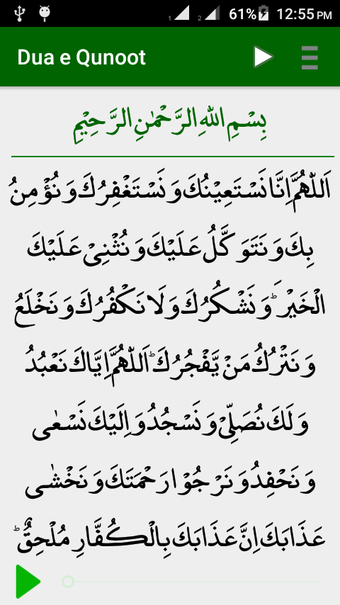 61% 12:55 PM
Dua e Qunoot
بِسْمِ اللّٰهِ الرَّحْمٰنِ الرَّحِيْمِ
اَللّٰهُمَّ اِنَّا نَسْتَعِيْنُكَ وَ نَسْتَغْفِرُكَ وَ نُؤْمِنُ
بِكَ وَ نَتَوَكَّلُ عَلَيْكَ وَ نُثْنِىْ عَلَيْكَ
الْخَيْرَ ؕ وَ نَشْكُرُكَ وَ لَا نَكْفُرُكَ وَ نَخْلَعُ
وَ نَتْرُكُ مَنْ يَّفْجُرُكَ ؕ اَللّٰهُمَّ اِيَّاكَ نَعْبُدُ
وَ لَكَ نُصَلِّىْ وَ نَسْجُدُ وَ اِلَيْكَ نَسْعٰى
وَ نَحْفِدُ وَ نَرْجُوْا رَحْمَتَكَ وَ نَخْشٰى
عَذَابَكَ اِنَّ عَذَابَكَ بِالْكُفَّارِ مُلْحِقٌ ؕ